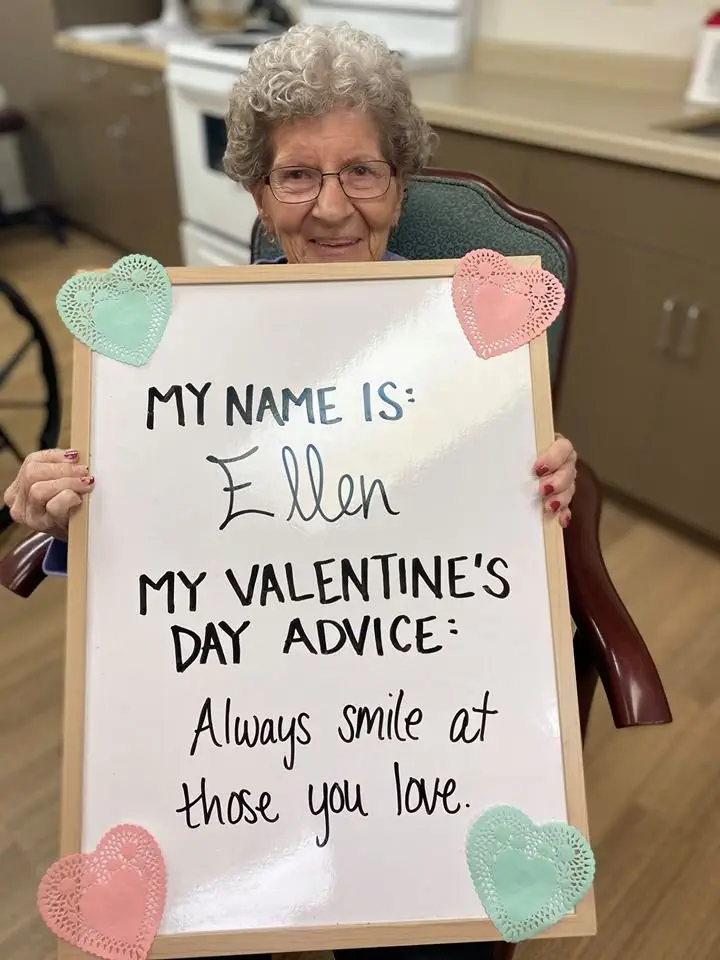 MY NAME IS:
Ellen
MY VALENTINE'S
DAY ADVICE:
Always smile at
those you love.